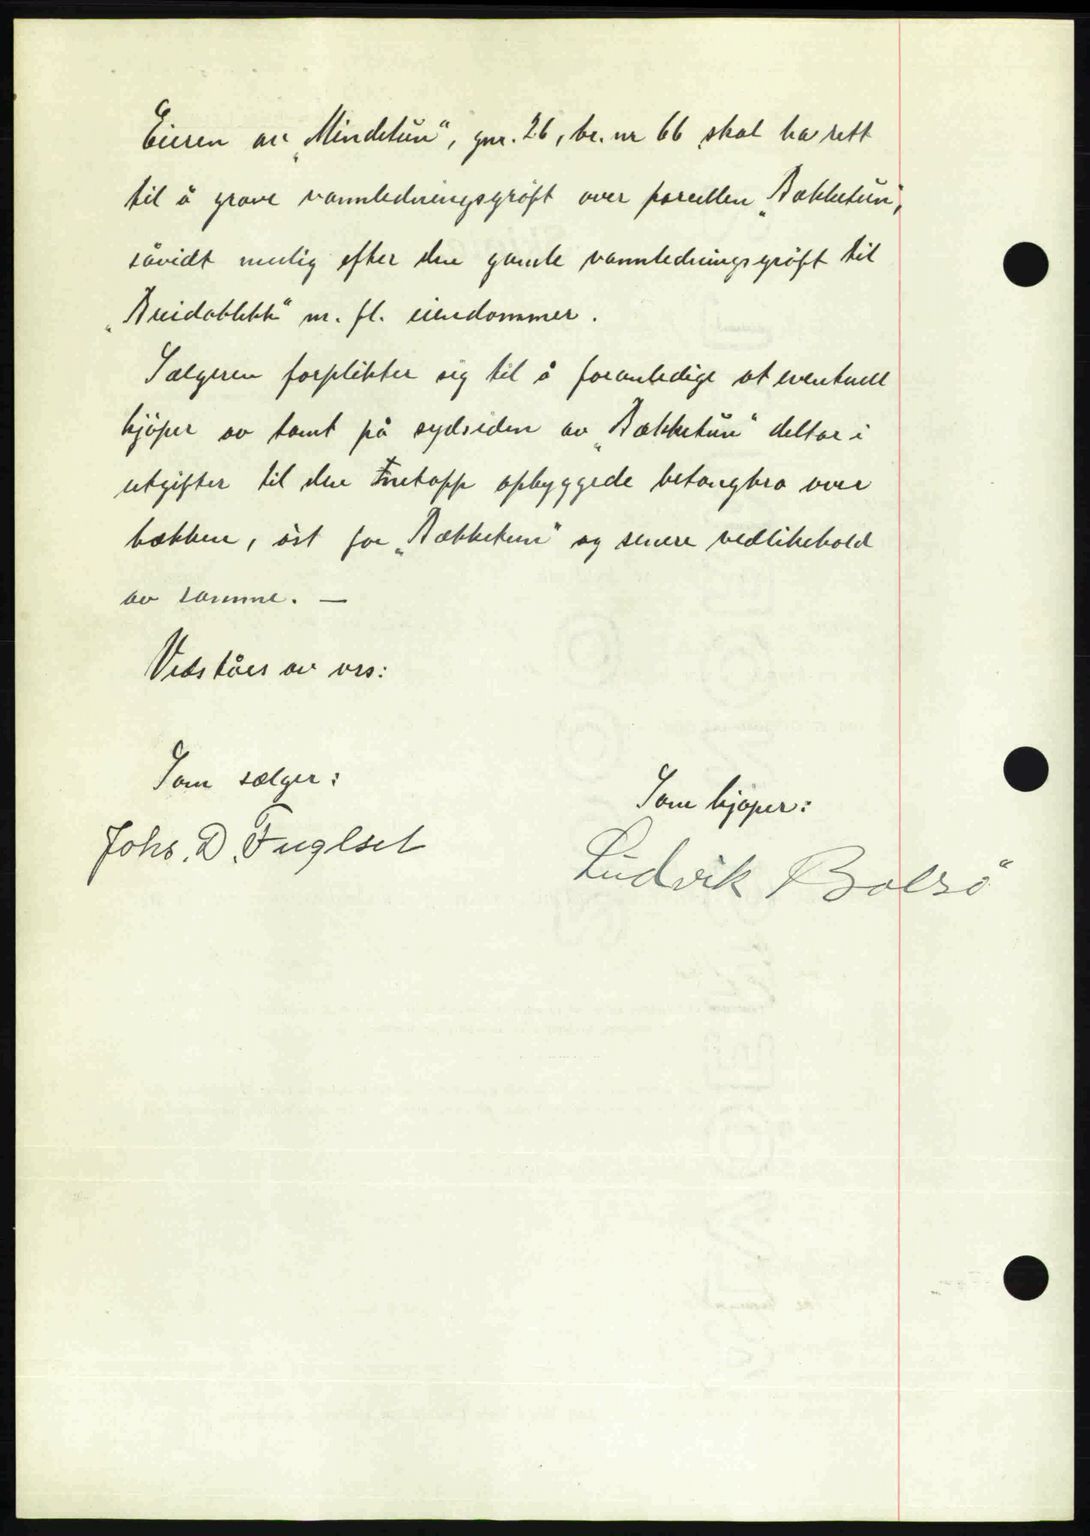 Eieren av „Mindetun“, gnr. 26, br. nr 66 skal ha rett
til å grave vannledningsgrøft over parcellen „Bækketun“,
såvidt mulig efter den gamle vannledningsgrøft til
„Breidablikk“ m. fl. eiendommer.
Sælgeren forplikter sig til å foranledige at eventuell
kjøper av tomt på sydsiden av „Bækketun“ deltar i
utgifter til den netopp opbyggede betongbro over
bækken, øst for „Bækketun“ og senere vedlikehold
av samme. —
Vedståes av oss:
Som sælger:
Som kjøper:
Johs. D. Fuglset
Ludvik Bolsö